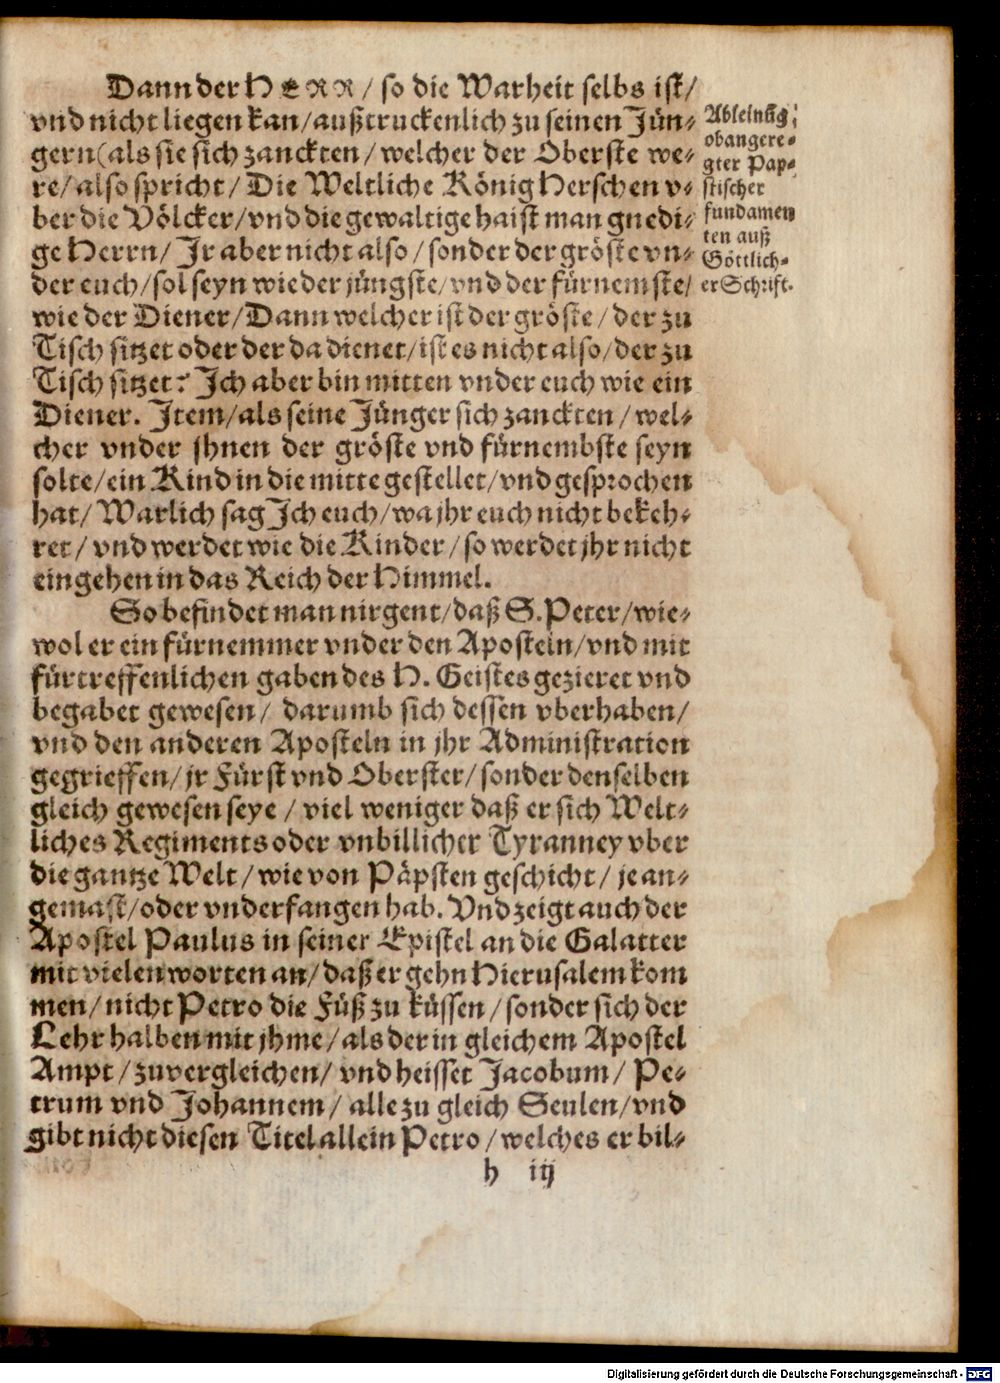 Dann der HERR / so die Warheit selbs ist/
vnd nicht liegen kan/außtruckenlich zu seinen Jün-
gern (als sie sich zanckten / welcher der Oberste we-
re/also spricht/ Die Weltliche König Herschen v-
ber die Völcker/vnd die gewaltige haist man gnedi-
ge Herrn/ Jr aber nicht also / sonder der gröste vn-
der euch/sol seyn wie der jüngste/vnd der fürnemste/
wie der Diener/Dann welcher ist der gröste/der zu
Tisch sitzet oder der da dienet/ist es nicht also/der zu
Tisch sitzet? Jch aber bin mitten vnder euch wie ein
Diener. Jtem/als seine Jünger sich zanckten / wel-
cher vnder jhnen der gröste vnd fürnembste seyn
solte/ein Kind in die mitte gestellet/vnd gesprochen
hat/ Warlich sag Jch euch/wa jhr euch nicht bekeh-
ret/ vnd werdet wie die Kinder/so werdet jhr nicht
eingehen in das Reich der Himmel.
So befindet man nirgent/daß S. Peter/wie-
wol er ein fürnemmer vnder den Aposteln/vnd mit
fürtreffenlichen gaben des H. Geistes gezieret vnd
begabet gewesen/ darumb sich dessen vberhaben/
vnd den anderen Aposteln in jhr Administration
gegrieffen/jr Fürst vnd Oberster/sonder denselben
gleich gewesen seye / viel weniger daß er sich Welt-
liches Regiments oder vnbillicher Tyranney vber
die gantze Welt/wie von Päpsten geschicht/ je an-
gemast/oder vnderfangen hab. Vnd zeigt auch der
Apostel Paulus in seiner Epistel an die Galatter
mit vielen worten an/daß er gehn Hierusalem kom
men/nicht Petro die Füß zu küssen/sonder sich der
Lehr halben mit jhme/als der in gleichem Apostel
Ampt/zuvergleichen/ vnd heisset Jacobum/ Pe-
trum vnd Johannem/ alle zu gleich Seulen/vnd
gibt nicht diesen Titel allein Petro/welches er bil-
h iij
Ableinũg
obangere-
gter Pap-
stischer
fundamen
ten auß
Göttlich-
er Schrift.
Digitalisierung gefördert durch die Deutsche Forschungsgemeinschaft - DFG